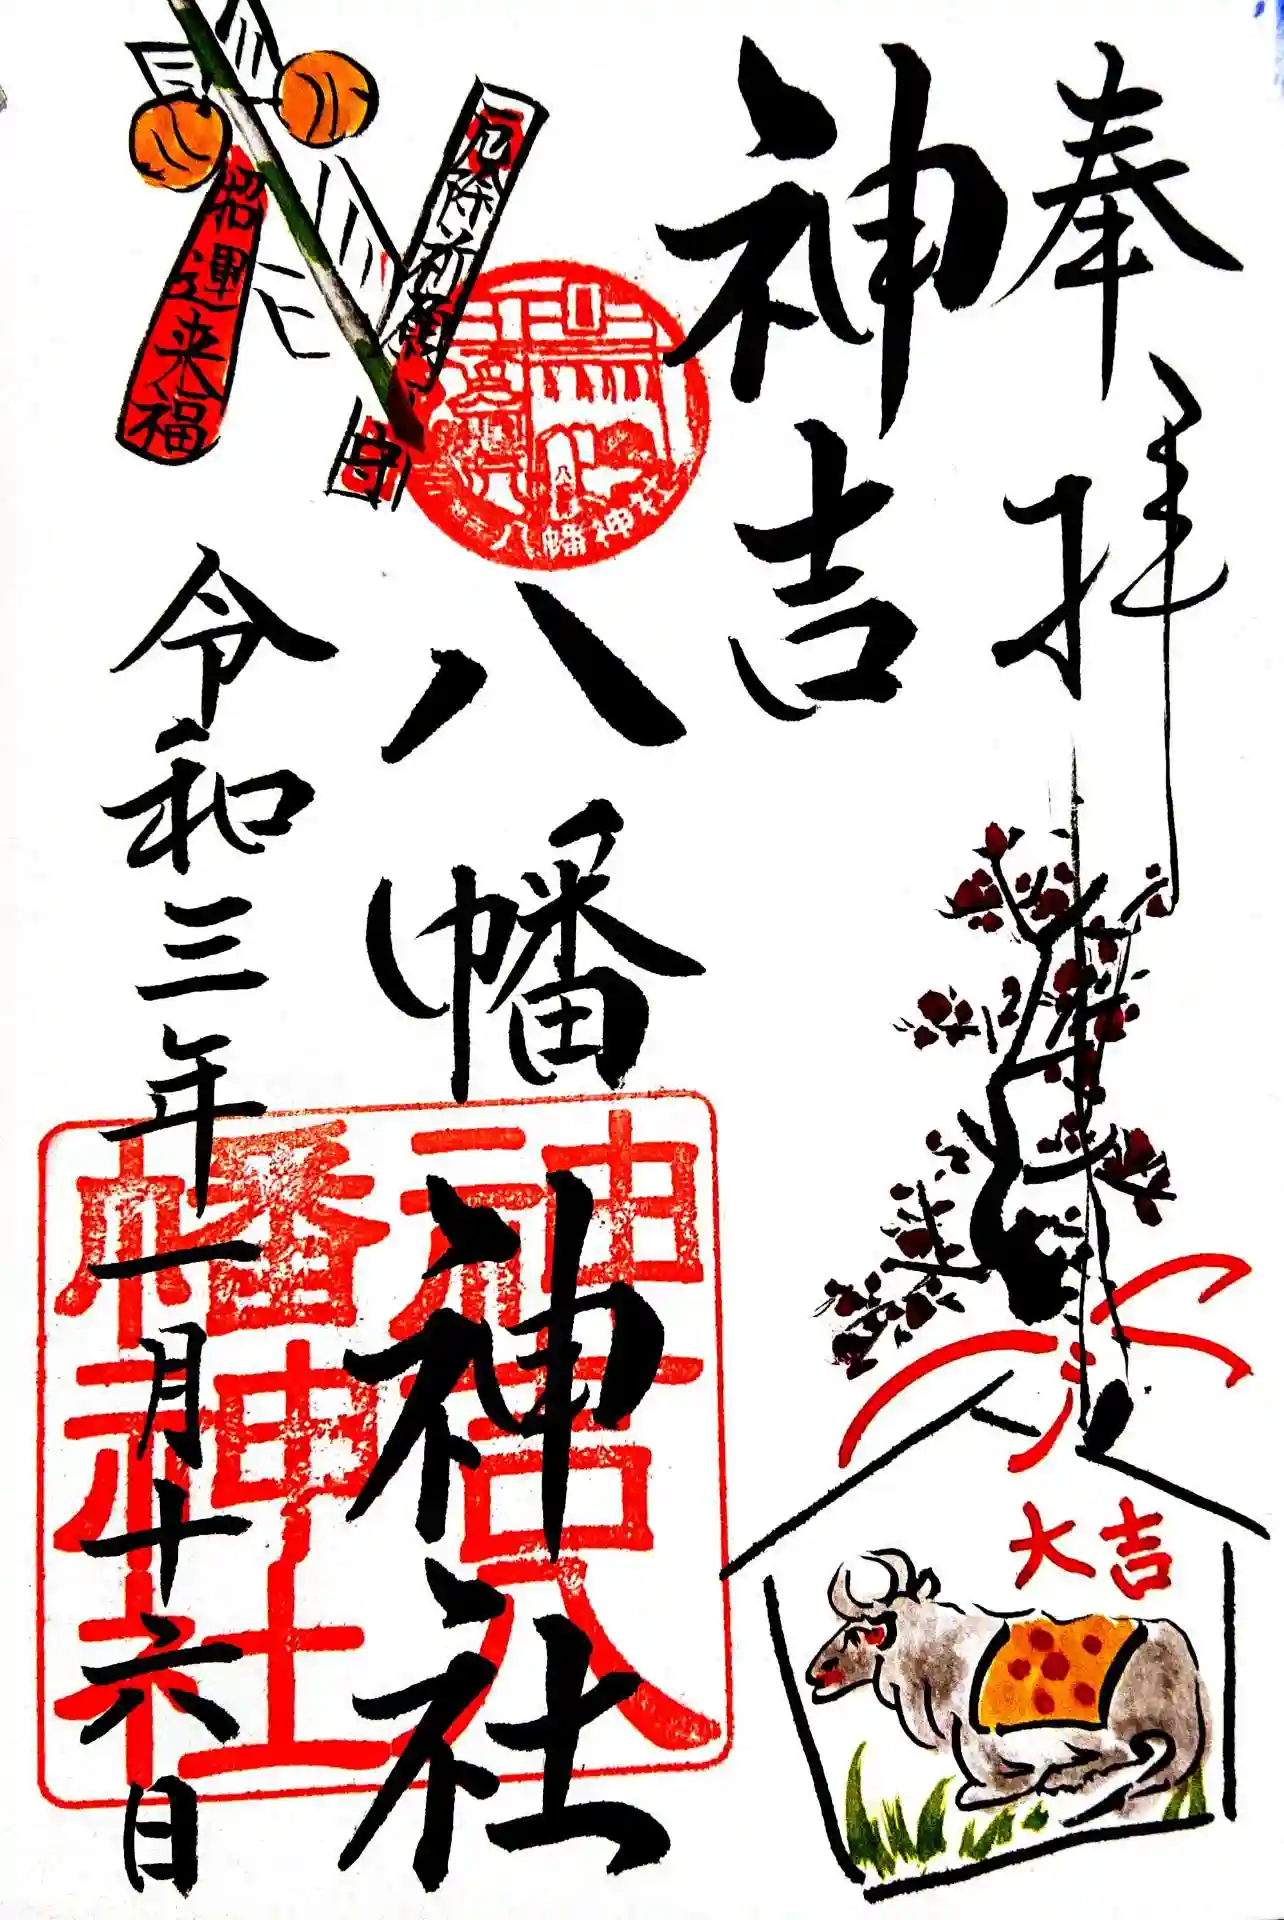 奉拝
神吉
八幡神社
令和三年一月十六日
招運来福
厄除祈祷
守
八幡神社
神吉八
幡神社
大吉